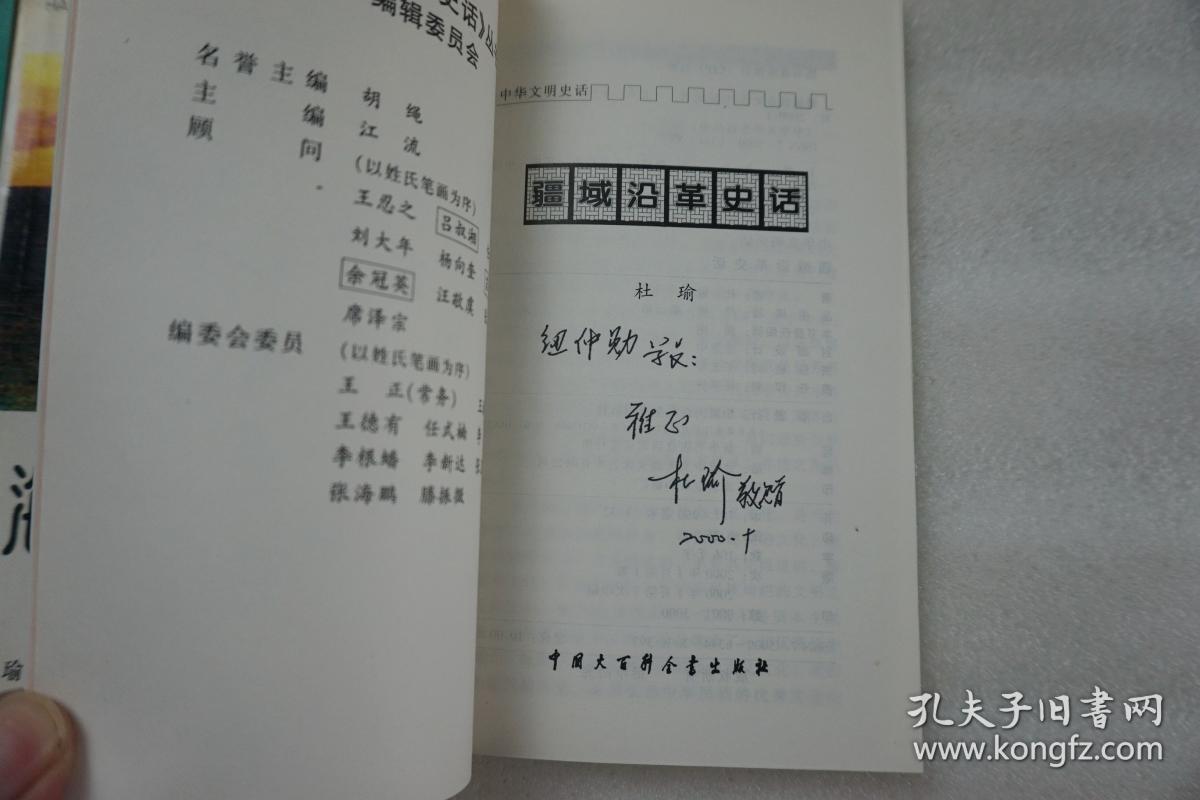 史话》丛
编辑委员会
名誉主编 胡绳
主编 江流
顾问 (以姓氏笔画为序)
王忍之 吕叔湘
刘大年 杨向奎
余冠英 汪敬虞
席泽宗
编委会委员 (以姓氏笔画为序)
王正(常务) 王
王德有 任式楠
李根蟠 李新达
张海鹏 滕振微
瑜
中华文明史话
疆域沿革史话
杜瑜
纽仲勋学长:
雅正
杜瑜敬赠
2000.十
中国大百科全书出版社
孔夫子旧书网
www.kongfz.com